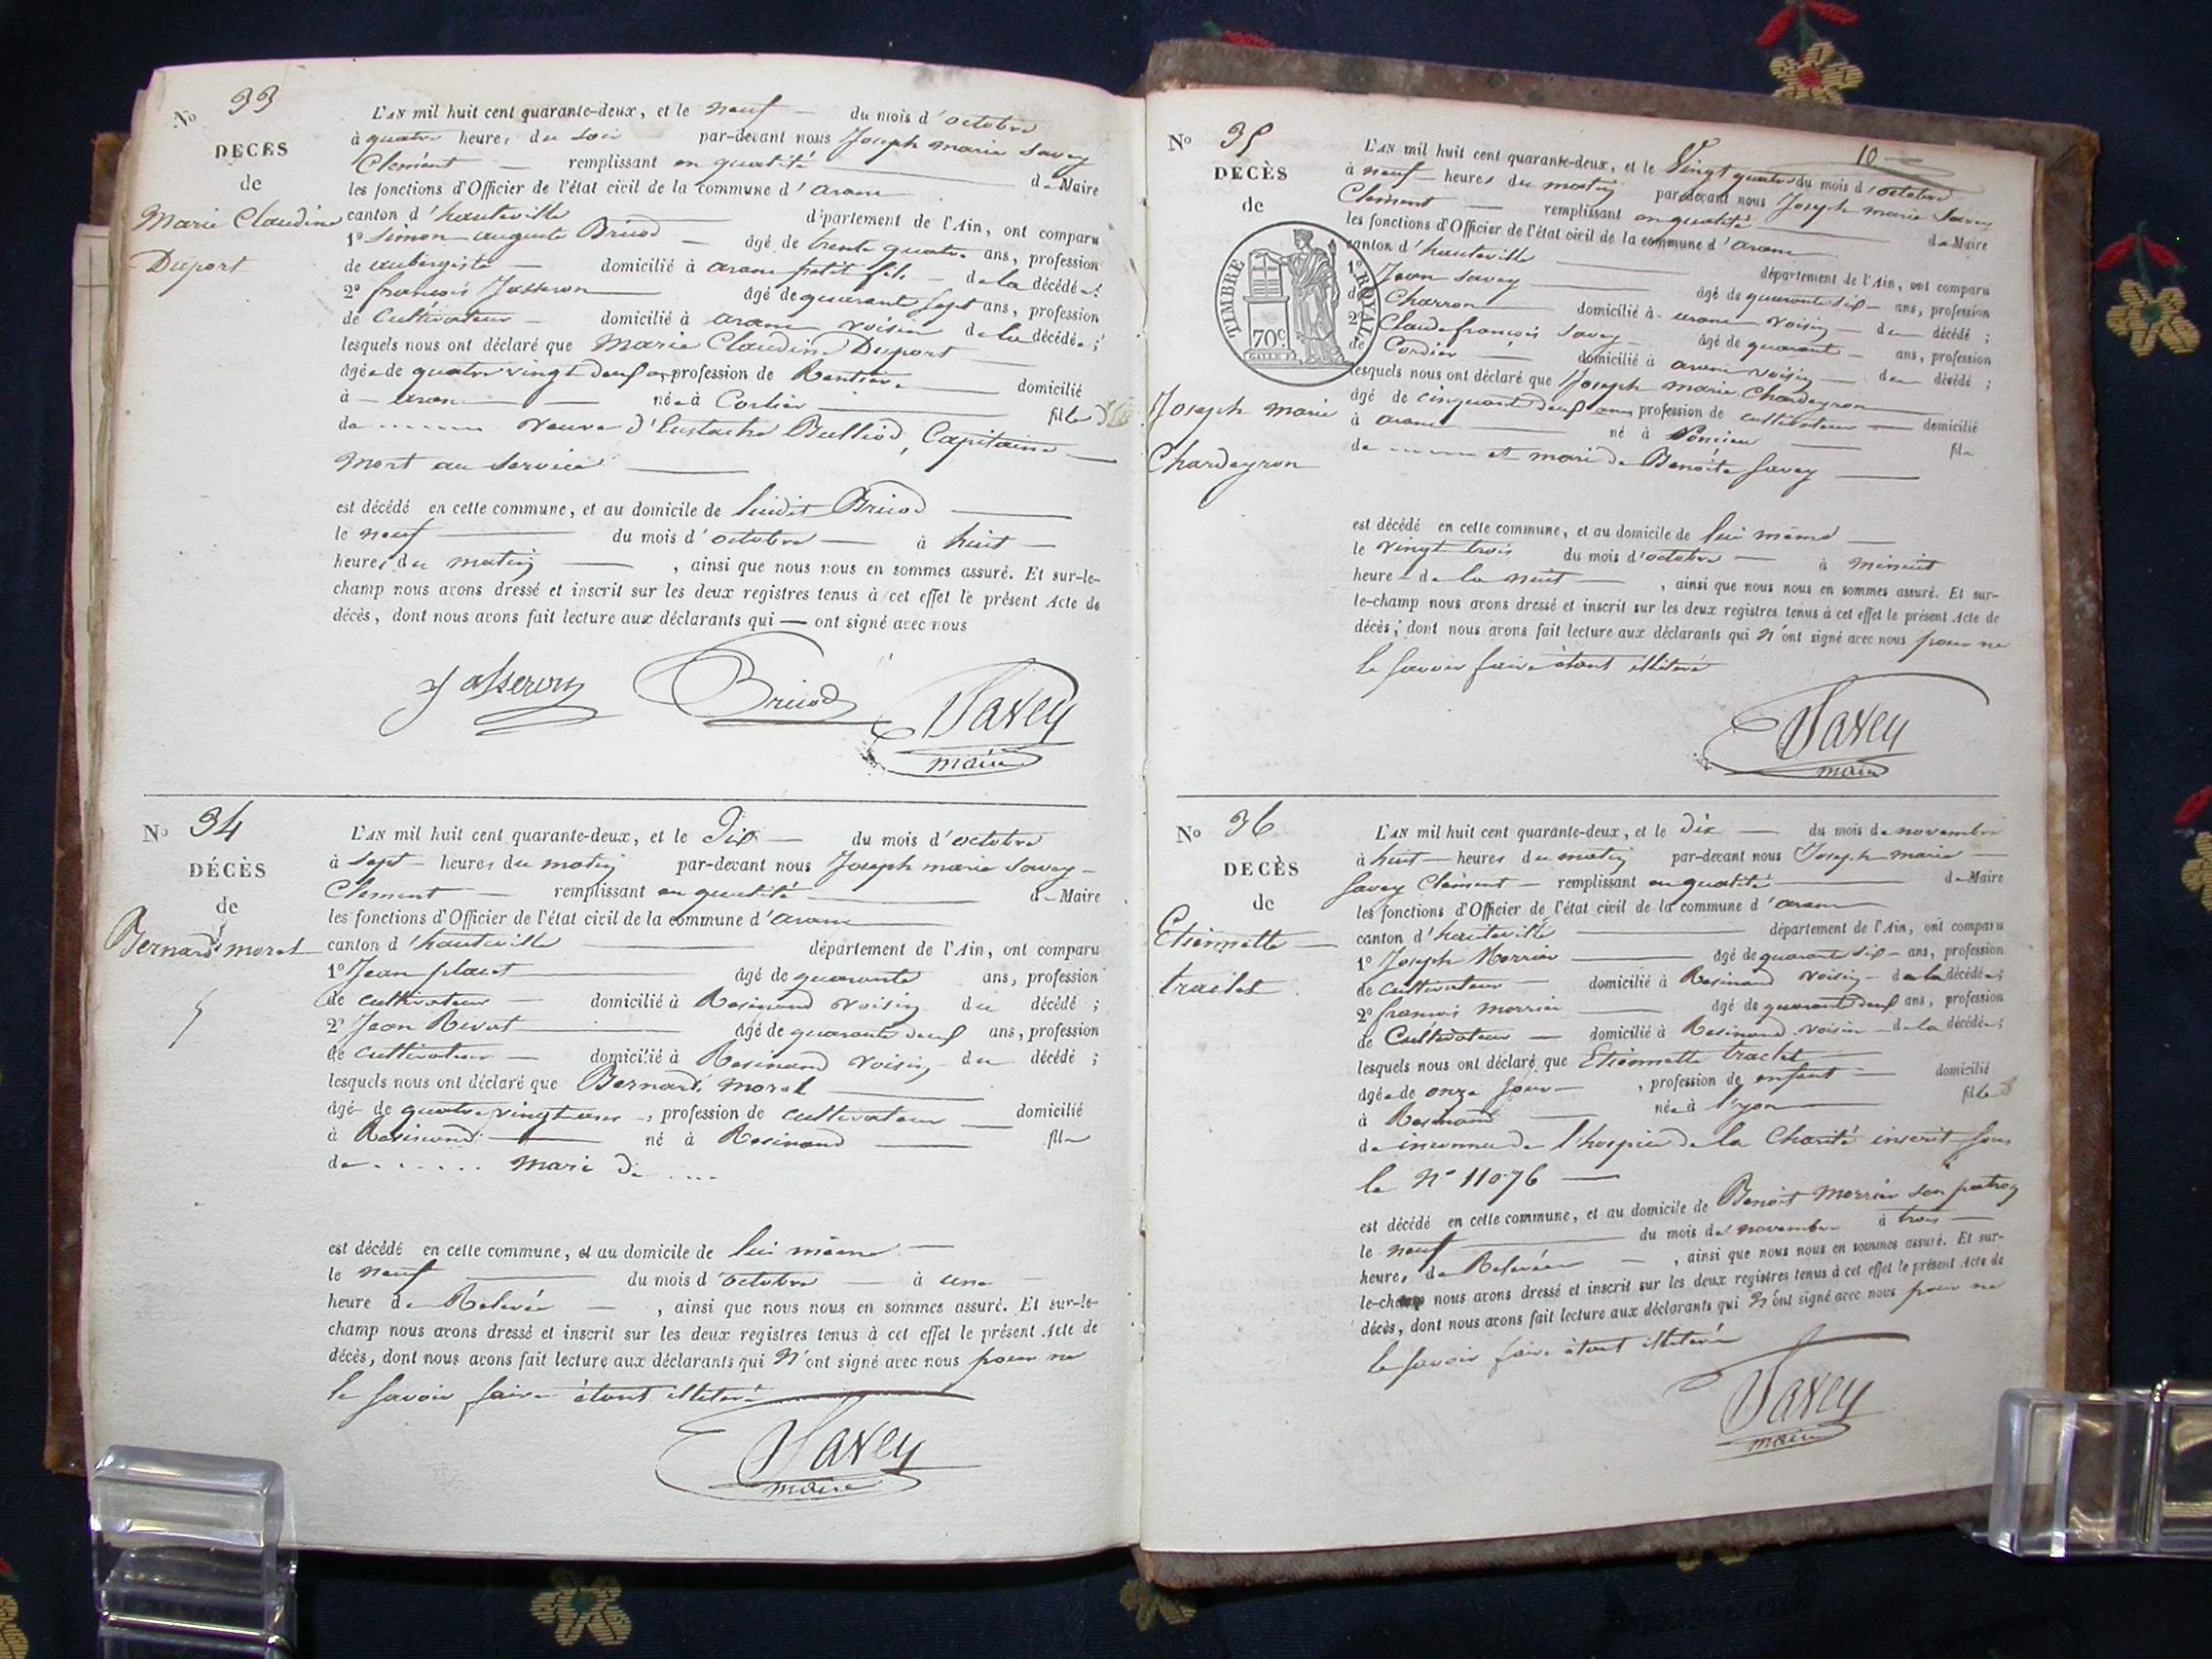 No 33
DÉCÈS
de
Marie Claudine
Duport
L'AN mil huit cent quarante-deux, et le neuf — du mois d'octobre
à quatre heures du soir par-devant nous Joseph marie Savey
Clement — remplissant en qualité — de Maire
les fonctions d'Officier de l'état civil de la commune d'aranc
canton d'hauteville — département de l'Ain, ont comparu
1° Simon auguste Bricod — âgé de trente quatre ans, profession
de aubergiste — domicilié à aranc petit fils — de la décédée;
2° françois Jasseron — âgé de quarant sept ans, profession
de Cultivateur — domicilié à aranc voisin de la décédée;
lesquels nous ont déclaré que Marie Claudine Duport —
âgée de quatre vingt deux ans, profession de Rentière — domicilié
à aranc — née à Corlier — fille
de ...... veuve d'Eustache Bulliod, Capitaine —
mort au service —
est décédé en cette commune, et au domicile de ludit Bricod —
le neuf — du mois d'octobre — à huit —
heures du matin — , ainsi que nous nous en sommes assuré. Et sur-le-
champ nous avons dressé et inscrit sur les deux registres tenus à cet effet le présent Acte de
décès, dont nous avons fait lecture aux déclarants qui — ont signé avec nous
Jasseron Bricod Savey
maire
No 34
DÉCÈS
de
Bernard moret
L'AN mil huit cent quarante-deux, et le Dix — du mois d'octobre
à sept — heures du matin par-devant nous Joseph marie Savey —
Clement — remplissant en qualité — de Maire
les fonctions d'Officier de l'état civil de la commune d'aranc
canton d'hauteville — département de l'Ain, ont comparu
1° Jean — âgé de quarante ans, profession
de cultivateur — domicilié à Resinand voisin du décédé;
2° Jean Revat — âgé de quarante deux ans, profession
de cultivateur — domicilié à Resinand voisin du décédé;
lesquels nous ont déclaré que Bernard moret —
âgé de quatre vingt ans —, profession de cultivateur — domicilié
à Resinand — né à Resinand — fils
de ...... mari de ....
est décédé en cette commune, et au domicile de lui même —
le neuf — du mois d'octobre — à une —
heure de Relevée — , ainsi que nous nous en sommes assuré. Et sur-le-
champ nous avons dressé et inscrit sur les deux registres tenus à cet effet le présent Acte de
décès, dont nous avons fait lecture aux déclarants qui N'ont signé avec nous pour ne
le savoir faire étant illiteré
Savey
maire
10
No 35
DÉCÈS
de
TIMBRE ROYAL
70c
Joseph marie
Chardeyron
L'AN mil huit cent quarante-deux, et le Vingt quatre du mois d'octobre
à neuf — heures du matin par-devant nous Joseph marie Savey
Clement — remplissant en qualité — de Maire
les fonctions d'Officier de l'état civil de la commune d'aranc
canton d'hauteville — département de l'Ain, ont comparu
1° Jean Savey — âgé de quarante six — ans, profession
de Charron — domicilié à aranc voisin — du décédé;
2° Claude françois Savey — âgé de quarant — ans, profession
de Cordier — domicilié à aranc voisin — du décédé;
lesquels nous ont déclaré que Joseph marie Chardeyron —
âgé de cinquant deux ans profession de cultivateur — domicilié
à aranc — né à Poncieu — fils
de ...... et mari de Benoite Savey —
est décédé en cette commune, et au domicile de lui même —
le vingt trois du mois d'octobre — à minuit
heure — de la nuit — , ainsi que nous nous en sommes assuré. Et sur-
le-champ nous avons dressé et inscrit sur les deux registres tenus à cet effet le présent Acte de
décès; dont nous avons fait lecture aux déclarants qui N'ont signé avec nous pour ne
le savoir faire étant illiteré
Savey
maire
No 36
DECÈS
de
Etiennette —
traclet
L'AN mil huit cent quarante-deux, et le dix — du mois de novembre
à huit — heures du matin par-devant nous Joseph marie —
Savey Clément — remplissant en qualité — de Maire
les fonctions d'Officier de l'état civil de la commune d'aranc
canton d'hauteville — département de l'Ain, ont comparu
1° Joseph Morrier — âgé de quarante six — ans, profession
de cultivateur — domicilié à Resinand voisin — de la décédée;
2° françois morrier — âgé de quarant deux ans, profession
de Cultivateur — domicilié à Resinand voisin — de la décédée;
lesquels nous ont déclaré que Etiennette traclet —
âgée de onze jour — , profession de enfant — domicilié
à Resinand — née à lyon — fille
de inconnu de l'hospice de la Charité inscrit sous
le N° 11076 —
est décédé en cette commune, et au domicile de Benoit Morrier son patron
le neuf — du mois de novembre à trois —
heures de Relevée — , ainsi que nous nous en sommes assuré. Et sur-
le-champ nous avons dressé et inscrit sur les deux registres tenus à cet effet le présent Acte de
décès, dont nous avons fait lecture aux déclarants qui N'ont signé avec nous pour ne
le savoir faire étant illiteré
Savey
maire